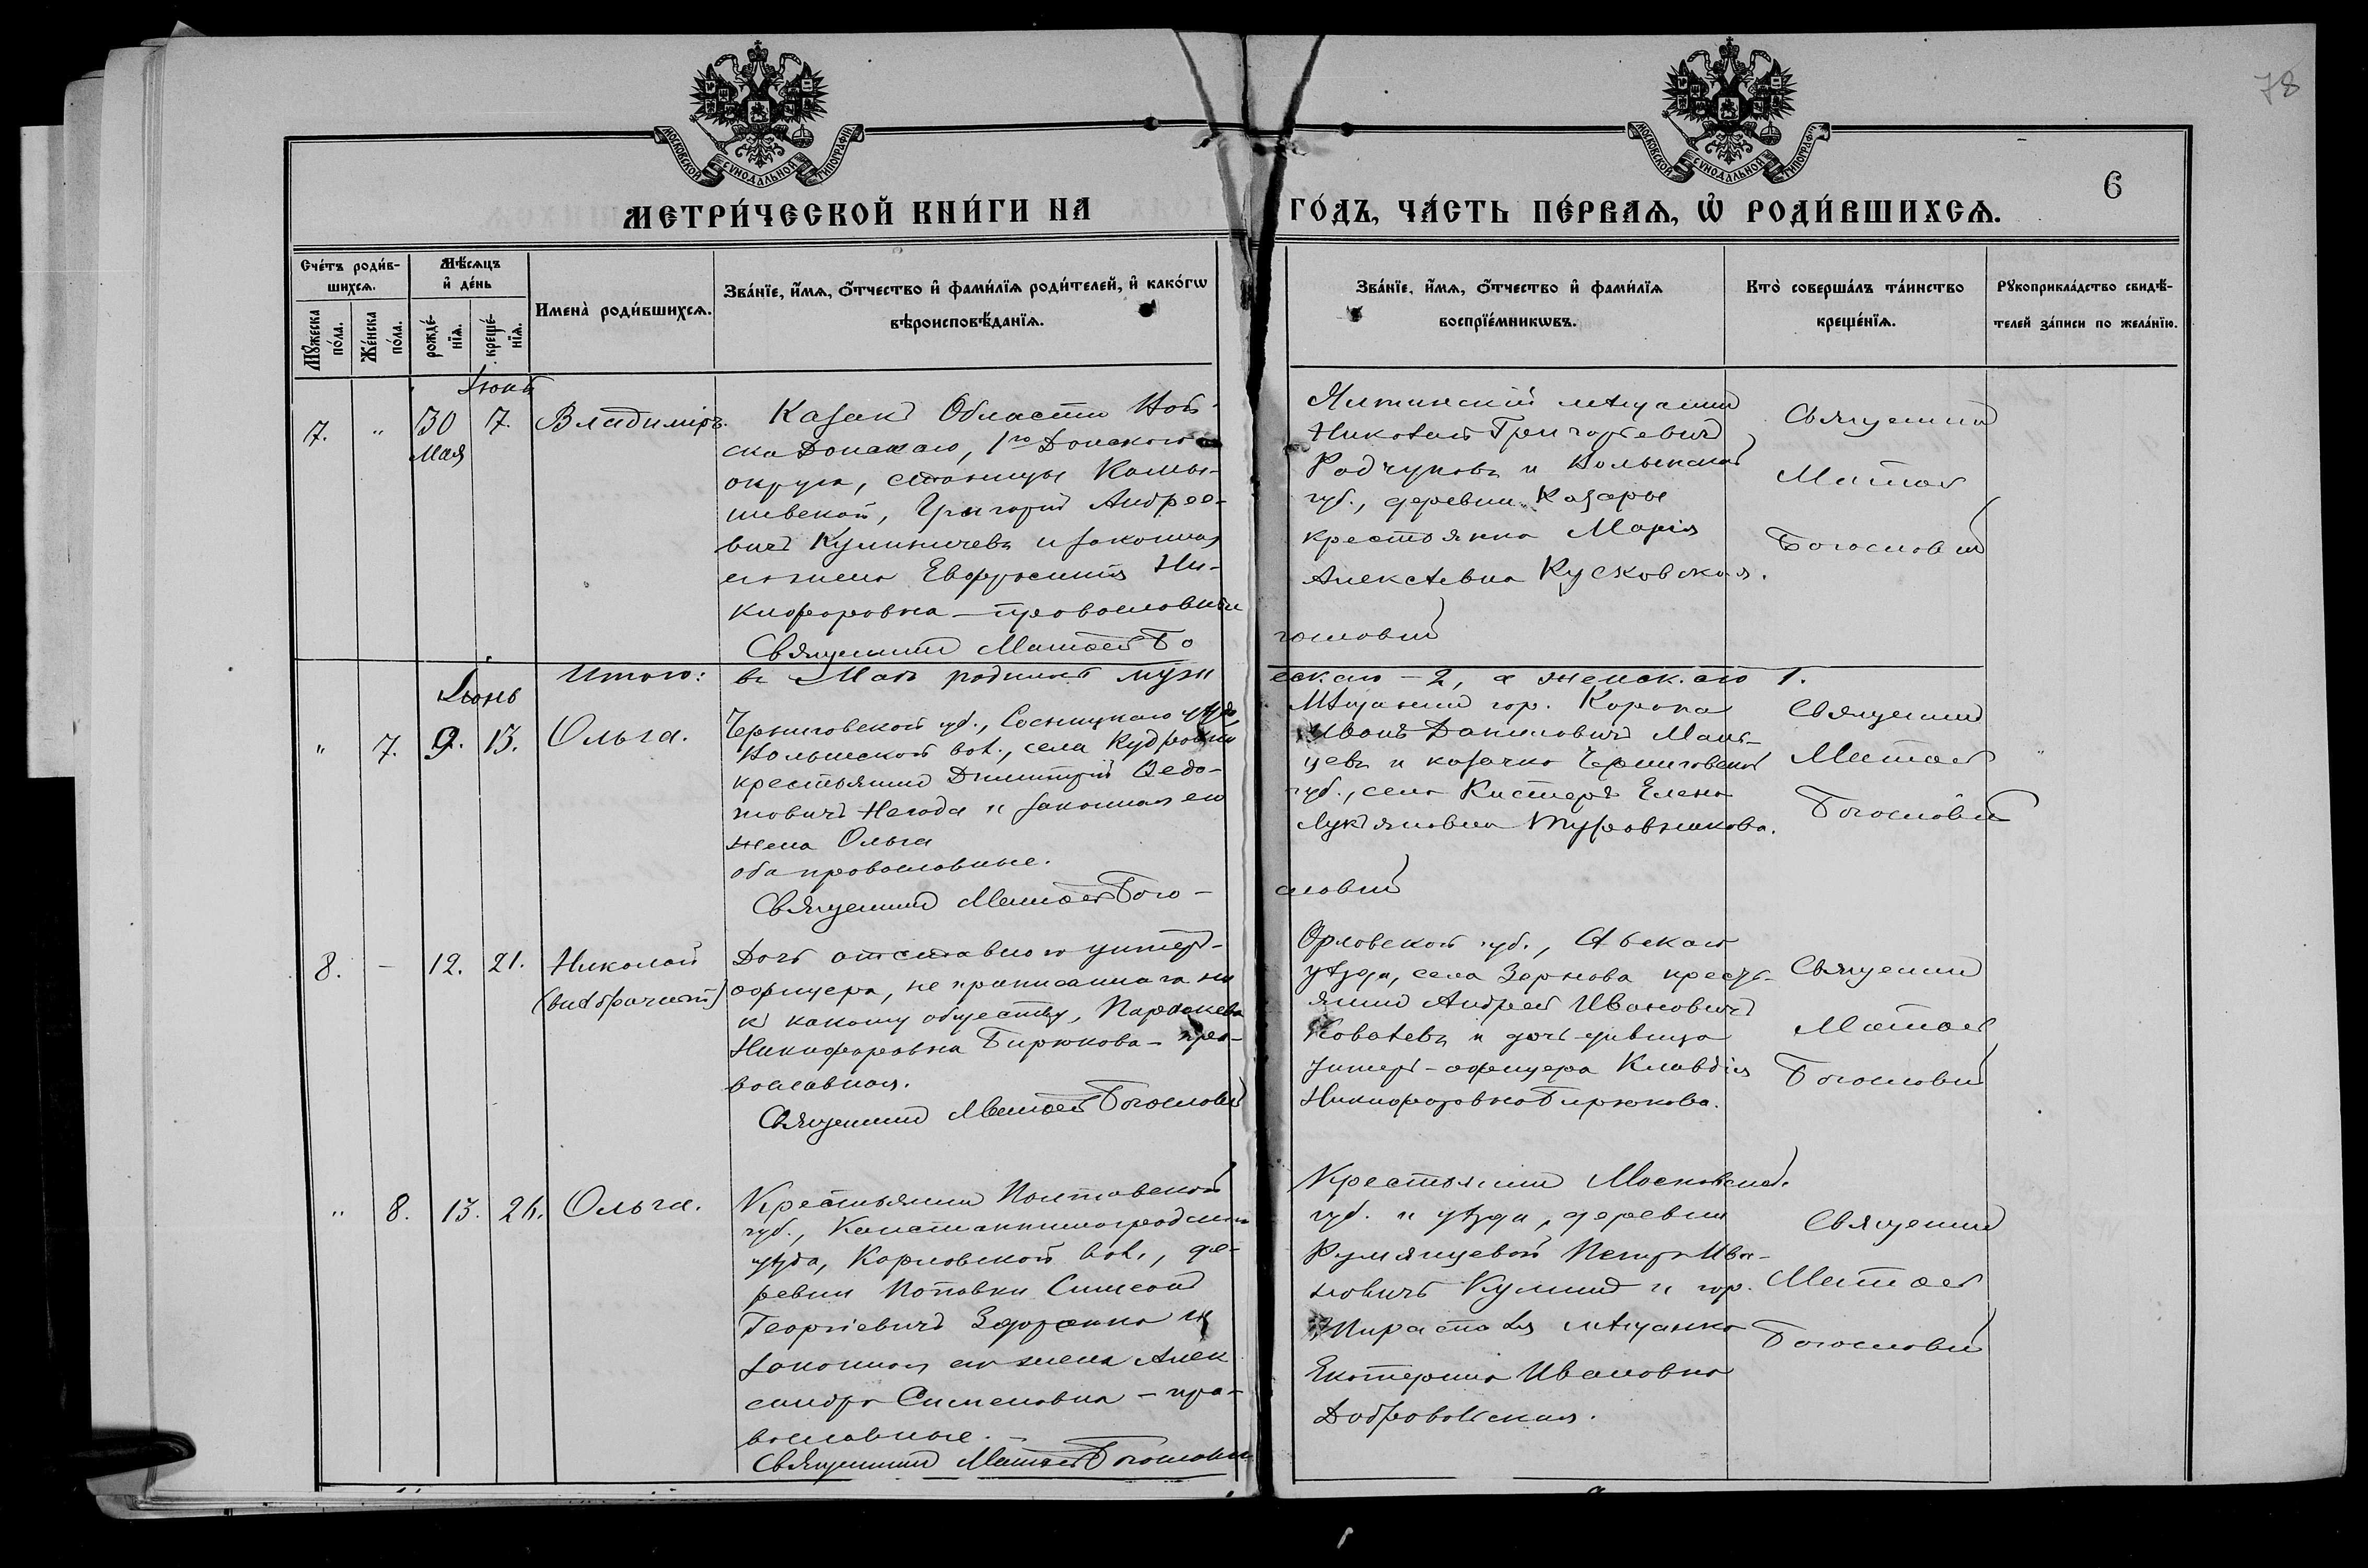 78
МОСКОВСКОЙ СУНОДАЛЬНОЙ ТИПОГРАФІИ
МОСКОВСКОЙ СУНОДАЛЬНОЙ ТИПОГРАФІИ
6
МЕТРИ́ЧЕСКОЙ КНИ́ГИ НА ГО́ДЪ, ЧА́СТЬ ПЕ́РВАѦ, Ѡ҆ РОДИ́ВШИХСѦ.
Сче́тъ роди́в-
шихсѧ.
Мꙋ́жеска по́ла.
Же́нска по́ла.
Мѣ́сѧцъ и҆ де́нь
рожде́-нїѧ.
креще́-нїѧ.
Имена̀ роди́вшихсѧ.
Зва́нїе, и҆́мѧ, ѻ҆́тчество и҆ фами́лїѧ роди́телей, и҆ како́гѡ
вѣроисповѣ́данїѧ.
Зва́нїе, и҆́мѧ, ѻ҆́тчество и҆ фами́лїѧ
воспрїе́мникѡвъ.
Кто̀ соверша́лъ та́инство
креще́нїѧ.
Рꙋкоприкла́дство свидѣ́-
телей за́писи по жела́нїю.
Іюнь
7. " 30 Мая 7. Владиміръ.
Казакъ Области Вой-
ска Донскаго, 1го Донского
округа, станицы Камы-
шевской, Григорій Андрее-
вичъ и законная
его жена Евфросинія Ни-
кифоровна - православные
Священникъ Матѳей Бо
гословскій
Ялтинскій мѣщанинъ
Николай Григорьевичъ
Радчуковъ и Волынской
губ., деревни Казары
крестьянка Марія
Алексѣевна Кусковская.
Священникъ
Матѳей
Богословскій
Итого: въ Маѣ родилось муж
ескаго - 2, а женскаго 1.
Іюнь
" 7. 9. 13. Ольга.
Черниговской губ., Сосницкаго уѣзда,
Волынской вол., села Кудровки
крестьянинъ Димитрій Ѳедо-
товичъ Негода и законная его
жена Ольга
оба православные.
Священникъ Матѳей Бого-
словскій
Мѣщанинъ гор. Коропа
Иванъ Даниловичъ Маль-
цевъ и казачка Черниговской
губ., села Кистеръ Елена
Лукьяновна
Священникъ
Матѳей
Богословскій
8. - 12. 21. Николай
(внѣбрачный)
Дочь отставного унтеръ-
офицера, не приписаннаго ни
къ какому обществу, Параскева
Никифоровна Бирюкова - пра-
вославная.
Священникъ Матѳей Богословскій
Орловской губ., Сѣвскаго
уѣзда, села Зернова кресть-
янинъ Андрей Ивановичъ
Ковалевъ и дочь дѣвица
унтеръ-офицера Клавдія
Никифоровна Бирюкова.
Священникъ
Матѳей
Богословскій
" 8. 13. 26. Ольга.
Крестьянинъ Полтавской
губ., Константиноградскаго
уѣзда, Карловской вол., де-
ревни Поповки Симеонъ
Георгіевичъ и
законная его жена Алек
сандра Симеоновна - пра-
вославные.
Священникъ Матѳей Богословскій
Крестьянинъ Московской
губ. и уѣзда, деревни
Румянцевой Петръ Ива-
новичъ и гор.
мѣщанка
Екатерина Ивановна
Добровольская.
Священникъ
Матѳей
Богословскій